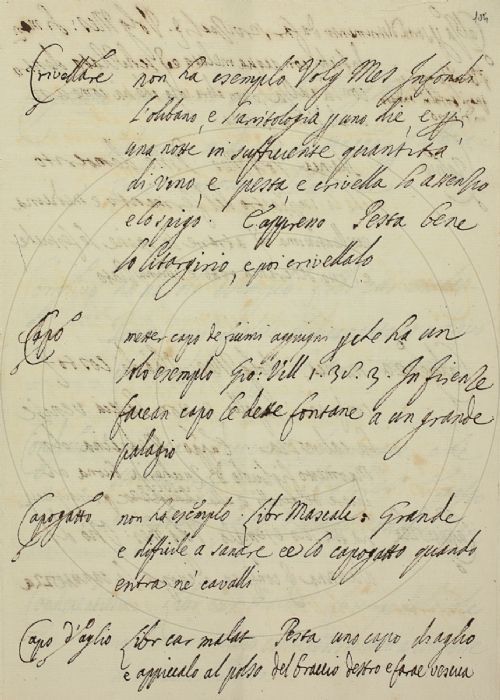 105
Crivellare non ha esemplo Volg Mes Infondi
l'olibano, e l'aristologia p uno die, e p
una notte in sufficiente quantità
di vino, e pesta, e crivella lo assenzio
e lo spigo. E appresso Pesta bene
lo litargirio, e poi crivellalo
Capo metter capo de fiumi aggiugni p che ha un
solo esemplo Gio: Vill 1. 38. 3. In Firenze
facean capo le dette fontane a un grande
palagio
Capogatto non ha esemplo. Libr Mascalc: Grande
e difficile a sanare ee lo capogatto quando
entra ne' cavalli
Capo d'aglio Libr car malat Pesta uno capo d'aglio
e appiccalo al polso del braccio destro e farae vescica